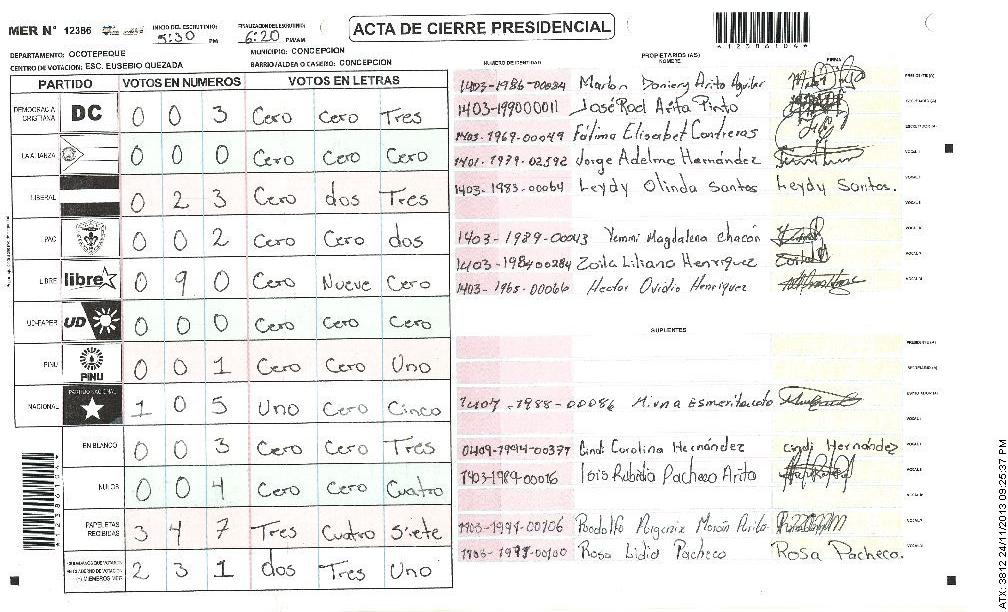 MER N° 12386
INICIO DEL ESCRUTINIO:
5:30 PM
FINALIZACION DEL ESCRUTINIO:
6:20 PM/AM
ACTA DE CIERRE PRESIDENCIAL
DEPARTAMENTO: OCOTEPEQUE
MUNICIPIO: CONCEPCION
CENTRO DE VOTACION: ESC. EUSEBIO QUEZADA
BARRIO/ALDEA O CASERIO: CONCEPCION
PARTIDO VOTOS EN NUMEROS VOTOS EN LETRAS
DEMOCRACIA CRISTIANA DC 0 0 3 Cero Cero Tres
LA ALIANZA 0 0 0 Cero Cero Cero
LIBERAL 0 2 3 Cero dos Tres
PAC 0 0 2 Cero Cero dos
LIBRE libre 0 9 0 Cero Nueve Cero
UD-FAPER UD 0 0 0 Cero Cero Cero
PINU PINU 0 0 1 Cero Cero Uno
NACIONAL PARTIDO NACIONAL 1 0 5 Uno Cero Cinco
EN BLANCO 0 0 3 Cero Cero Tres
NULOS 0 0 4 Cero Cero Cuatro
PAPELETAS RECIBIDAS 3 4 7 Tres Cuatro Siete
2 3 1 dos Tres Uno
NUMERO DE IDENTIDAD
PROPIETARIOS (AS)
NOMBRE
FIRMA
1403-1986-00084 Marlon Arita Aguilar
1403-199000011 José Arita Pinto
1403-1969-00049 Fátima Elisabet Contreras
1401-1979-02592 Jorge Adelmo Hernández
1403-1983-00064 Leydy Olinda Santos Leydy Santos.
1403-1989-00043 Yemmi Magdalena chacón
1403-198400284 Zoila Liliana Henriquez
1403-1965-00066 Hector Ovidio Henriquez
SUPLENTES
1407-1988-00086 Mirna
0409-1994-00377 Cindi Carolina Hernández Cindi Hernández
1403-1989-00016 Pacheco Arita
Rodolfo
Rosa Lidia Pacheco Rosa Pacheco.
ATX: 3812 24/11/2013 09:25:37 PM